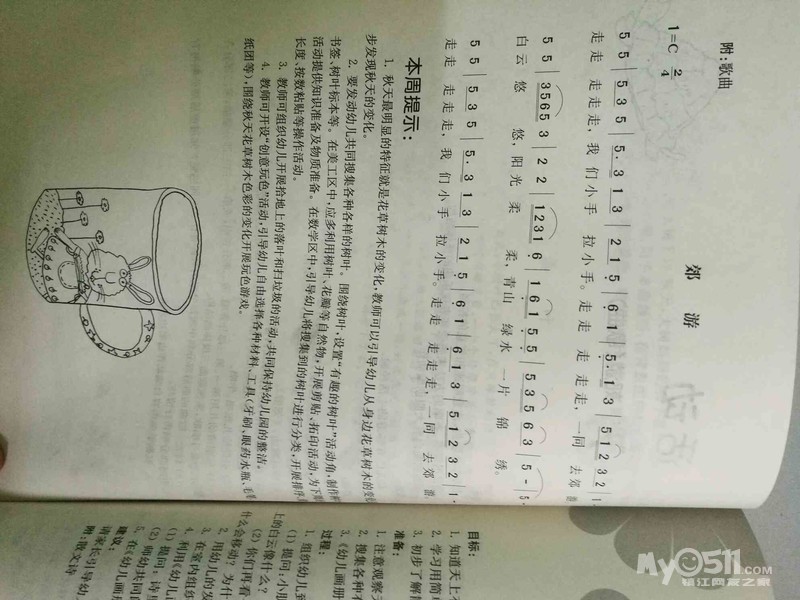 附:歌曲
郊 游
1=C 2/4
5 5 | 5 3 5 | 5· 3 1 3 | 2 1 5 | 6 1 | 5· 1 3 | 5 1 2 3 2 | 1·
走 走 走 走 走, 我 们 小 手 拉 小 手。 走 走 走 走 走, 一同 去 郊
5 5 | 3565 3 | 2 2 | 1231 6 | 1 6 1 | 5 5 | 5 3 5 6 3 | 5 - | 5
白云 悠 悠, 阳 光 柔 柔, 青山 绿 水 一 片 锦 绣。
5 5 | 5 3 5 | 5· 3 1 3 | 2 1 5 | 6 1 | 6 1 3 | 5 1 2 3 2 | 1·
走 走 走 走 走, 我 们 小 手 拉 小 手。 走 走 走 走 走, 一同 去 郊
本周提示:
1. 秋天最明显的特征就是花草树木的变化,教师可以引导幼儿从身边花草树木的变
步发现秋天的变化。
2. 要发动幼儿共同搜集各种各样的树叶。围绕树叶,设置“有趣的树叶”活动角,制作
书签、树叶标本等。在美工区中,应多利用树叶、花瓣等自然物,开展剪贴、拓印活动,为下
活动提供知识准备及物质准备。在数学区中,引导幼儿将搜集到的树叶进行分类,开展排序、
长度、按数粘贴等操作活动。
3. 教师可组织幼儿开展拾地上的落叶和扫垃圾的活动,共同保持幼儿园的整洁。
4. 教师可开设“创意玩色”活动,引导幼儿自由选择各种材料、工具(牙刷、眼药水瓶、
纸团等),围绕秋天花草树木色彩的变化开展玩色游戏。
目标:
1. 知道天上
2. 学习用简
3. 初步了解
准备:
1. 注意观察
2. 搜集各种
3.《幼儿画册
过程:
1. 组织幼儿
(1) 提问:小朋
上的白云像什么?
(2) 你们再看
什么会移动?为什
2. 用幼儿的发
3. 在室内组织
4. 利用《幼儿
(1) 提问:诗
(2) 师幼共同
5. 在《幼儿画
建议:
请家长引导幼
附:散文诗
My0511.com
镇江网友之家